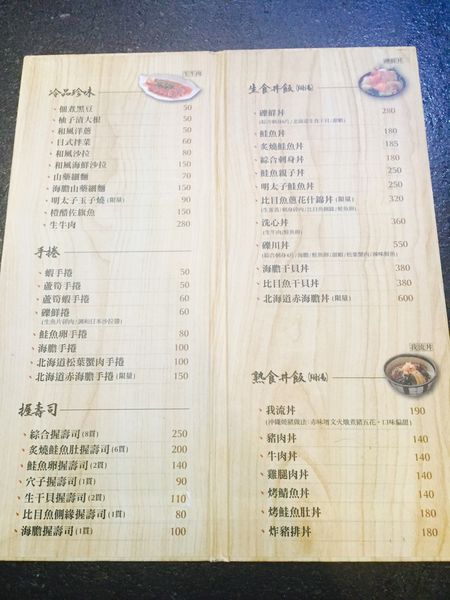 生牛肉
冷品珍味
佃煮黑豆 50
柚子漬大根 50
和風洋蔥 50
日式拌菜 60
和風沙拉 80
和風海鮮沙拉 150
山藥細麵 70
海膽山藥細麵 150
明太子玉子燒(限量) 90
橙醋佐旗魚 150
生牛肉 280
手捲
蝦手捲 50
蘆筍手捲 50
蘆筍蝦手捲 60
礫鮮捲 60
鮭魚卵手捲 80
海膽手捲 100
北海道松葉蟹肉手捲 100
北海道赤海膽手捲(限量) 150
握壽司
綜合握壽司(8貫) 250
炙燒鮭魚肚握壽司(6貫) 200
鮭魚卵握壽司(2貫) 140
穴子握壽司(1貫) 90
生干貝握壽司(2貫) 110
比目魚側緣握壽司(1貫) 80
海膽握壽司(1貫) 100
礫鮮丼
生食丼飯(附湯)
礫鮮丼 280
鮭魚丼 180
炙燒鮭魚丼 185
綜合刺身丼 180
鮭魚親子丼 250
明太子鮭魚丼 250
比目魚蔥花什錦丼(限量) 320
洗心丼 360
(生牛肉/鮭魚卵)
礫川丼 550
海膽干貝丼 380
比目魚干貝丼 380
北海道赤海膽丼(限量) 600
我流丼
熟食丼飯(附湯)
我流丼 190
(沖繩燒豬做法: 赤味增文火燉煮豬五花，口味偏甜)
豬肉丼 140
牛肉丼 140
雞腿肉丼 140
烤鯖魚丼 140
烤鮭魚肚丼 180
炸豬排丼 180